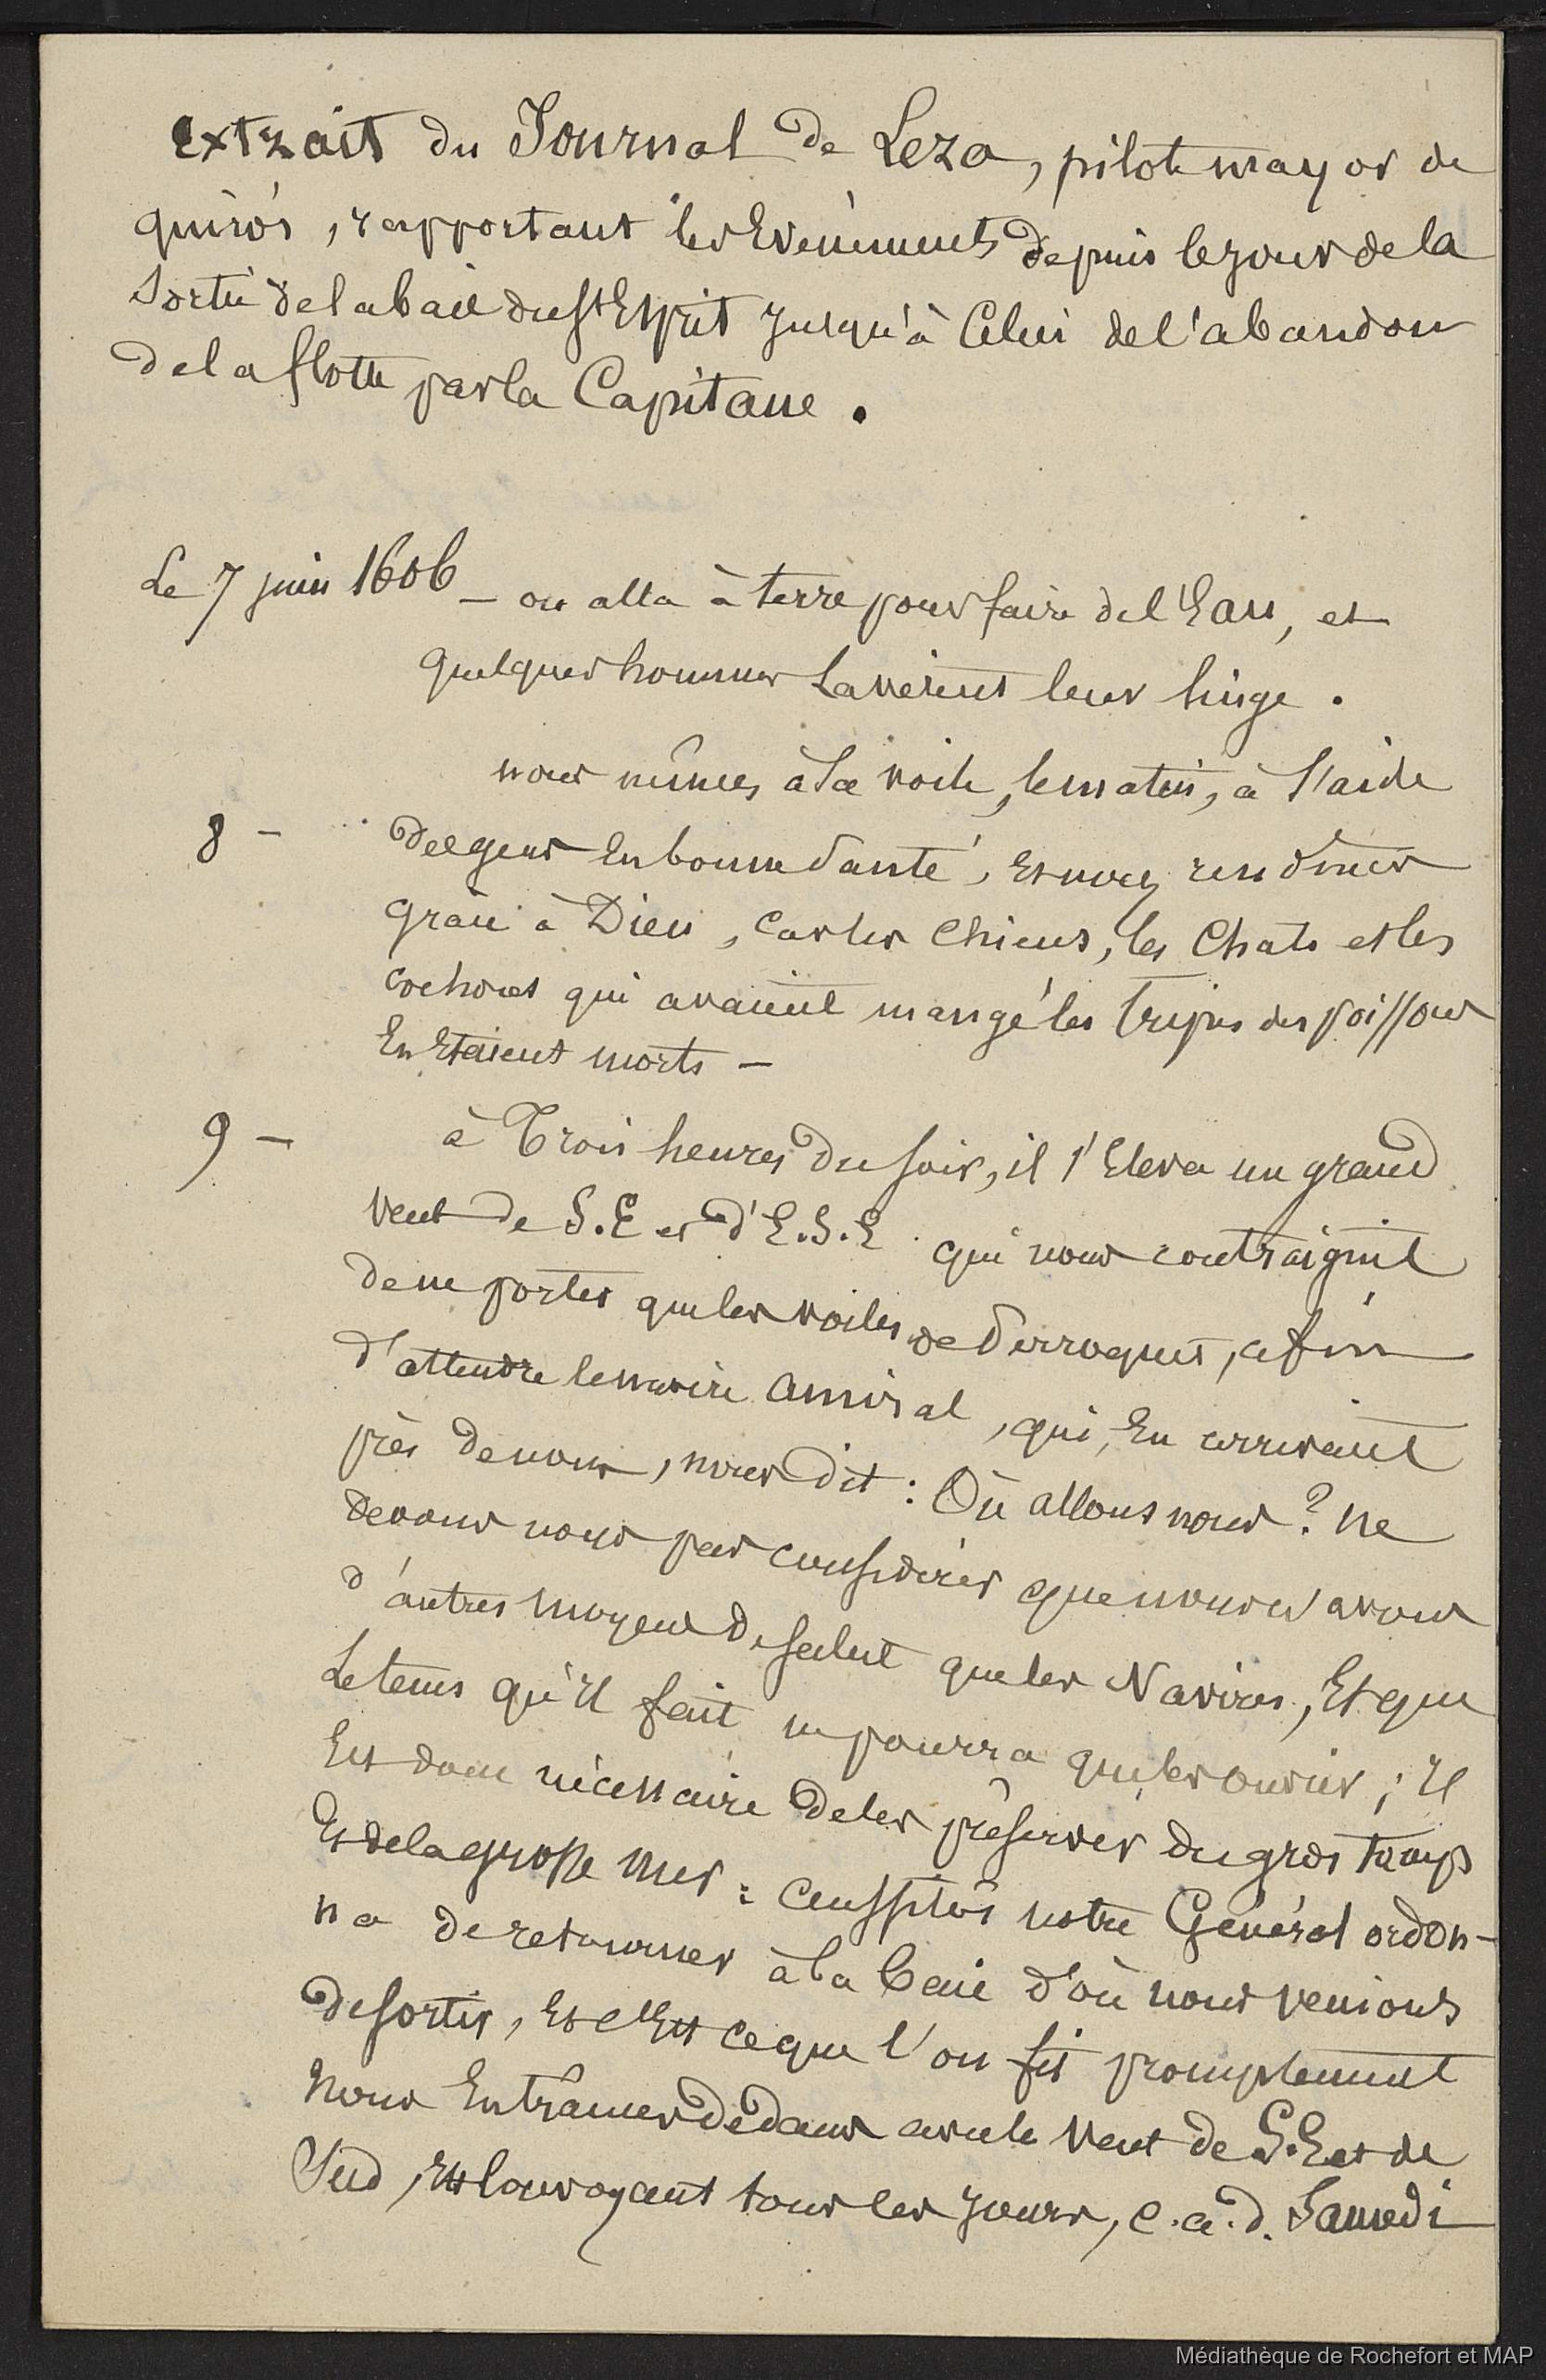 Extrait du Journal de Leza, pilote mayor de
quirós, rapportant les Evènements depuis le jour de la
sortie de la baie du St Esprit jusqu'à Celui de l'abandon
de la flotte par la Capitane.
Le 7 juin 1606 — on alla à terre pour faire de l'Eau, et
quelques hommes Lavèrent leur linge.
nous mîmes à la voile, le matin, à l'aide
8 — des gens en bonne santé, et nous rendîmes
grâce à Dieu, car les chiens, les Chats et les
cochons qui avaient mangé les tripes des poissons
En Etaient morts —
9 — à Trois heures du soir, il s'Eleva un grand
Vent de S.E et d'E.S.E qui nous contraignit
de ne porter que les voiles de perroquet, afin
d'attendre le navire amiral, qui, En arrivant
près de nous, nous dit : Où allons nous? ne
devons nous pas considérer que nous n'avons
d'autres moyens de salut que les Navires, Et que
Le tems qu'il fait ne pourra que les ouvrir ; il
Est donc nécessaire de les préserver du gros temps
Et de la grosse mer : aussitôt notre Général ordon-
na de retourner à la baie d'où nous venions
de sortir, Et c'Est ce que l'on fit promptement
Nous Entrâmes dedans avec le Vent de S.E et de
Sud, Et louvoyant tous les jours, c.a.d. Samedi
Médiathèque de Rochefort et MAP